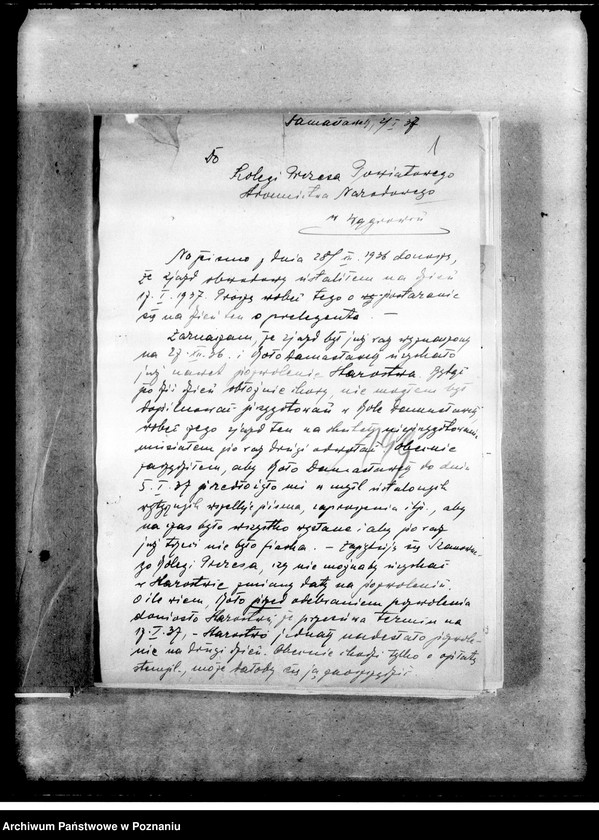 Damasławek, 4/I 37
1
Do
Kolegi Prezesa Powiatowego
Stronnictwa Narodowego
w Wągrowcu
Na pismo z dnia 28/XII. 1936 donoszę,
że zjazd obwodowy ustaliłem na dzień
17. I. 1937. Proszę wobec tego o postaranie
się na dzień ten o prelegenta. —
Zaznaczam, że zjazd był już raz wyznaczony
na 27. XII. 36. i Koło Damasławek uzyskało
już nawet pozwolenie Starostwa. Gdyż
dzień obłożnie chory, nie mogłem być
dopilnować przygotowań w Kole Damasławek
wobec czego zjazd ten na skutek nieprzygotowania
musiałem po raz drugi odwołać. Obecnie
zarządziłem, aby Koło Damasławek do dnia
5. I. 37 przedłożyło mi w myśl ustalonych
wytycznych wszelkie pisma, zaproszenia itp., aby
na czas było wszystko wysłane i aby po raz
już trzeci nie było fiaska. — Zapytuję się Szanowne-
go Kolegi Prezesa, czy nie możnaby uzyskać
w Starostwie zmiany daty na pozwoleniu.
O ile wiem, Koło przed odebraniem pozwolenia
doniosło Starostwu, że przesuwa termin na
17. I. 37, – Starostwo jednak nadesłało pozwole-
nie na drugi dzień. Obecnie chodzi tylko o opłatę
stempl., może dałoby się ją zaoszczędzić